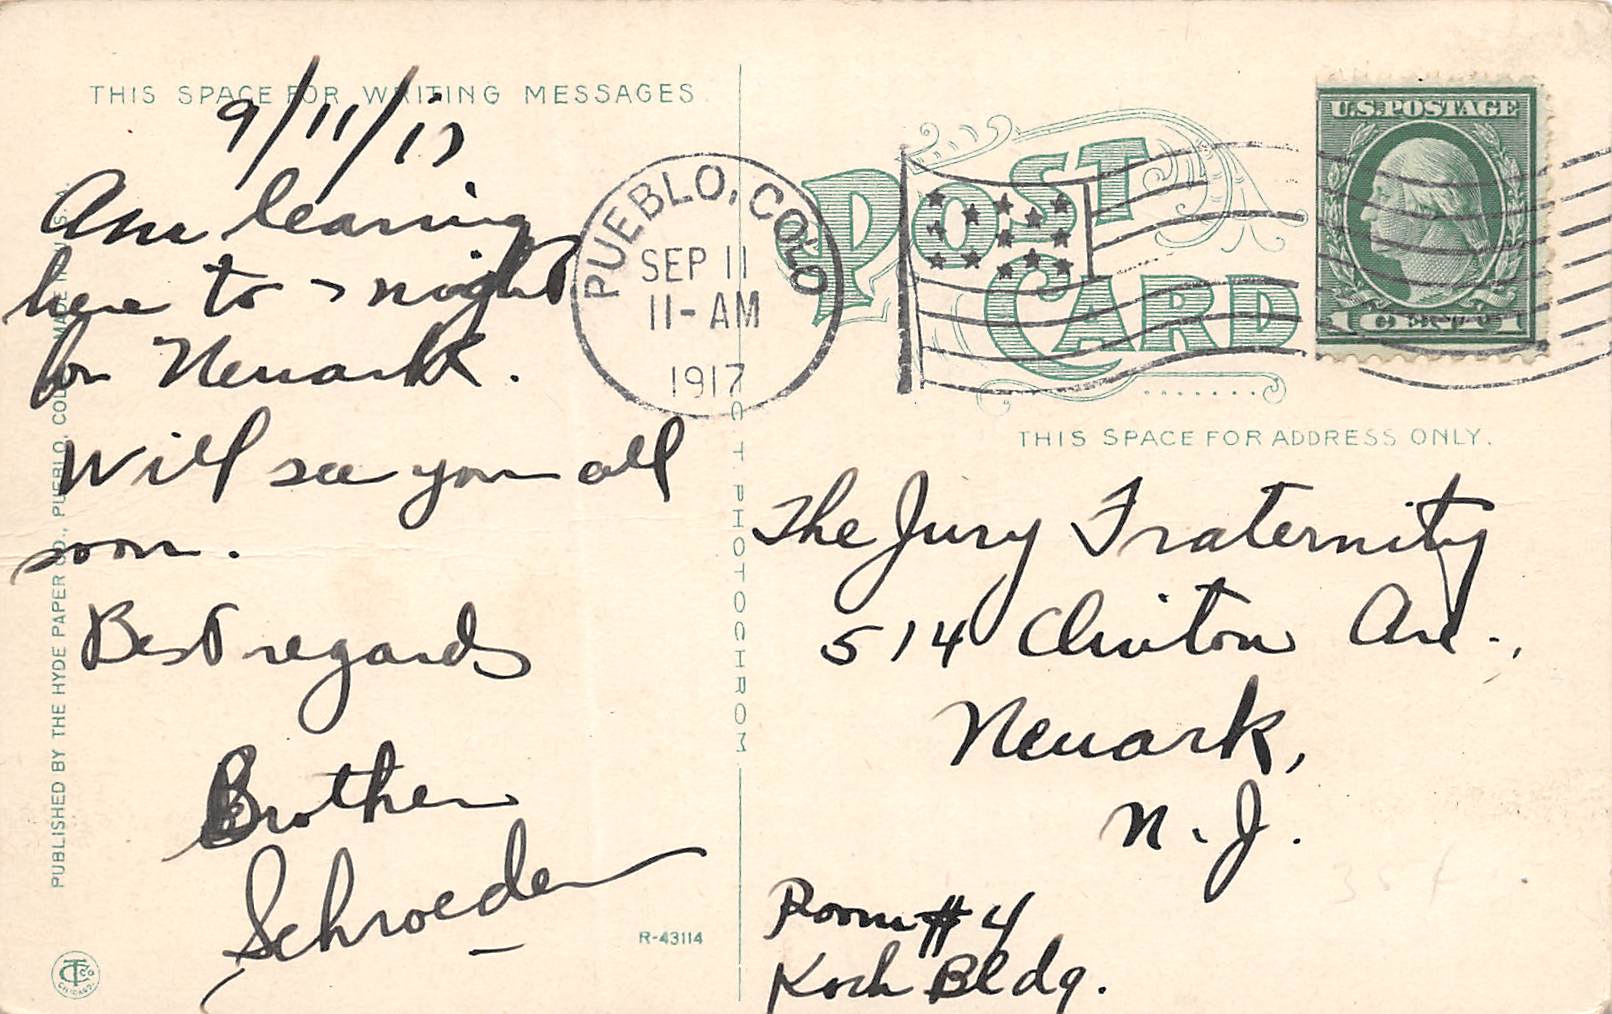 THIS SPACE FOR WRITING MESSAGES
9/11/17
Am leaving
here to-night
for Newark.
Will see you all
soon.
Best regards
Brother
Schroeder
PUBLISHED BY THE HYDE PAPER CO., PUEBLO, COLO. MADE IN U.S.A.
R-43114
C T PHOTOCHROM
PUEBLO, COLO
SEP 11
11-AM
1917
POST
CARD
U.S. POSTAGE
1 CENTS 1
THIS SPACE FOR ADDRESS ONLY.
The Jury Fraternity
514 Clinton Ave.,
Newark,
N. J.
Room #4
Koch Bldg.